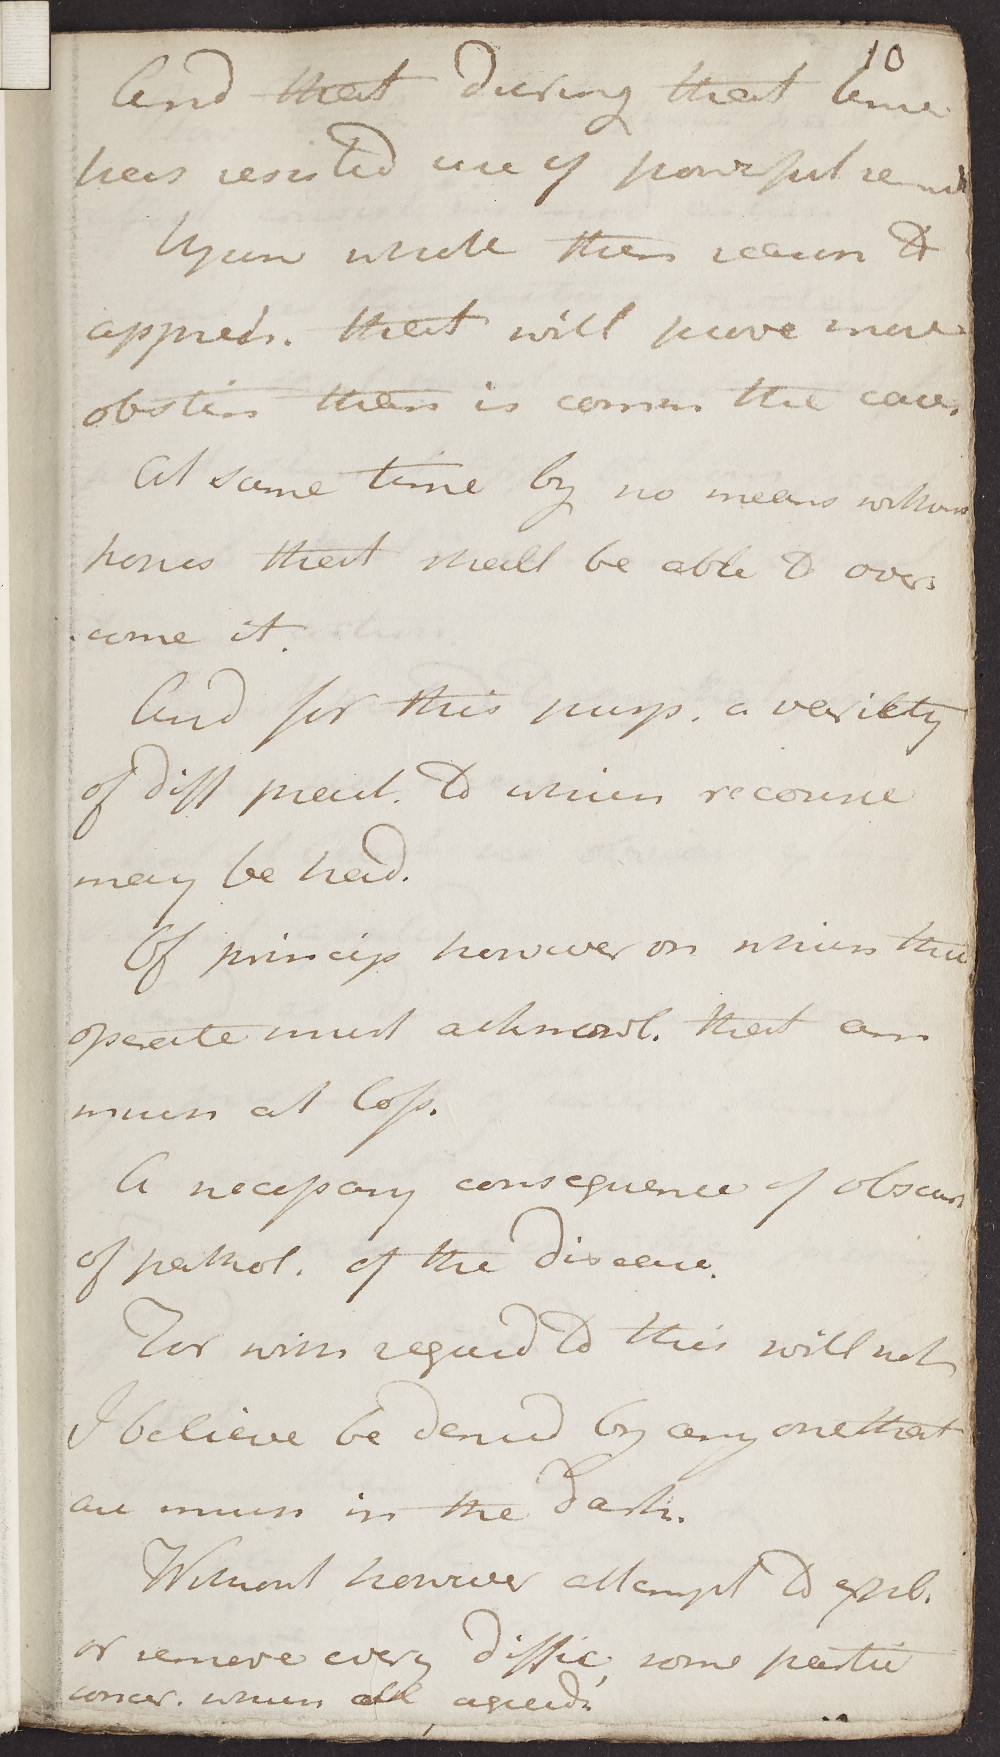 10
And that during that time
has resisted use of powerful remed
Upon whole then reason to
appreh. that will prove more
obstin than is commn the case.
At same time by no means without
hopes that shall be able to over
come it.
And for this purp. a variety
of diff pract. to which recourse
may be had.
Of princip however on which these
operate must acknowl. that am
much at loss.
A necessary consequence of obscur
of pathol. of the disease.
For with regard to this will not
I believe be denied by any one that
are much in the dark.
Without however attempt to expl.
or remove every diffic, some partic
concer. which all agreed.